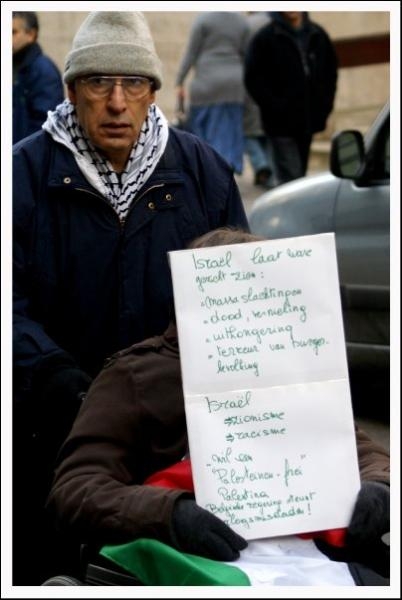 Israël laat ware
gezicht zien :
"massa slachtingen
"dood, vernieling
"uithongering
"terreur van burger-
bevolking
Israël
⇒zionisme
⇒racisme
"wil een
"Palesteinen-frei"
Palestina
Belgische regering steunt
oorlogsmisdaden!